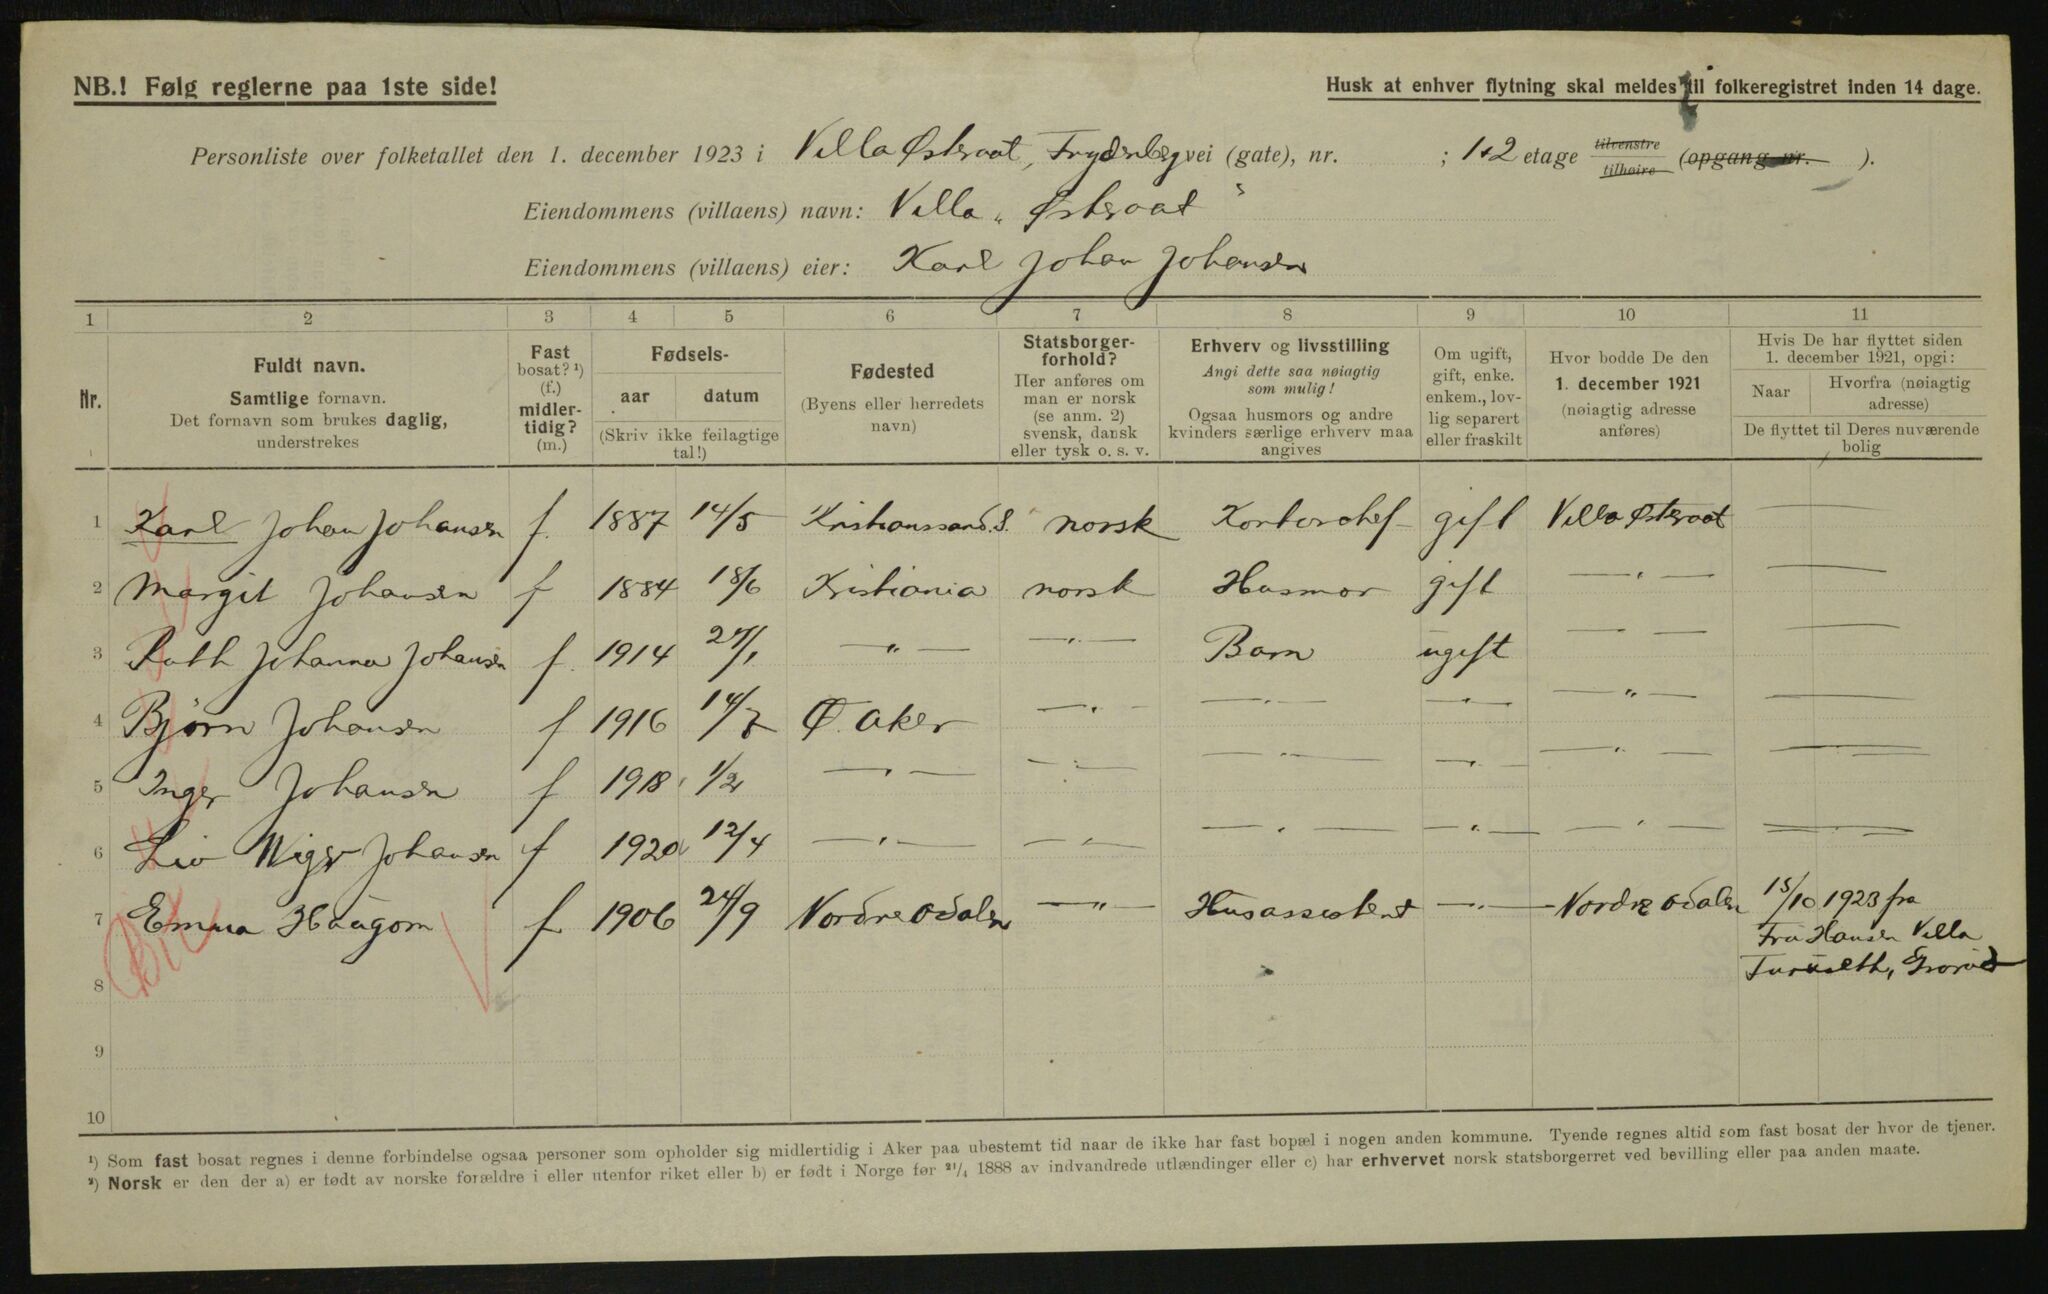 NB.! Følg reglerne paa 1ste side!
Husk at enhver flytning skal meldes til folkeregistret inden 14 dage.
Personliste over folketallet den 1. december 1923 i Villa Østeraat, Frydenberg vei (gate), nr. ; 1+2 etage tilvenstre tilhøire (opgang nr. ).
Eiendommens (villaens) navn: Villa "Østeraat"
Eiendommens (villaens) eier: Karl Johan Johansen
1 2 3 4 5 6 7 8 9 10 11
Nr.
Fuldt navn.
Samtlige fornavn.
Det fornavn som brukes daglig,
understrekes
Fast
bosat? ¹)
(f.)
midler-
tidig?
(m.)
Fødsels-
aar datum
(Skriv ikke feilagtige
tal!)
Fødested
(Byens eller herredets
navn)
Statsborger-
forhold?
Her anføres om
man er norsk
(se anm. 2)
svensk, dansk
eller tysk o. s. v.
Erhverv og livsstilling
Angi dette saa nøiagtig
som mulig!
Ogsaa husmors og andre
kvinders særlige erhverv maa
angives
Om ugift,
gift, enke.
enkem., lov-
lig separert
eller fraskilt
Hvor bodde De den
1. december 1921
(nøiagtig adresse
anføres)
Hvis De har flyttet siden
1. december 1921, opgi:
Naar Hvorfra (nøiagtig
adresse)
De flyttet til Deres nuværende
bolig
1 Karl Johan Johansen f. 1887 14/5 Kristianssand.S. norsk Kontorchef gift Villa Østeraat —
2 Margit Johansen f 1884 18/6 Kristiania norsk Husmor gift — " — —
3 Ruth Johanna Johansen f. 1914 27/1 — " — — " — Barn ugift — " — —
4 Bjørn Johansen f 1916 14/7 Ø. Aker — " — — " — — " — — " — —
5 Inger Johansen f 1918 1/2 — " — — " — — " — — " — — " — —
6 Liv Wiger Johansen f 1920 12/4 — " — — " — — " — — " — — " — —
7 Emma Haugom f 1906 24/9 Nordre Odalen — " — Husassistent — " — Nordre Odalen 15/10 1923 fra
Fru Hansen Villa
Furuseth, Grorud
8
9
10
¹) Som fast bosat regnes i denne forbindelse ogsaa personer som opholder sig midlertidig i Aker paa ubestemt tid naar de ikke har fast bopæl i nogen anden kommune. Tyende regnes altid som fast bosat der hvor de tjener.
²) Norsk er den der a) er født av norske forældre i eller utenfor riket eller b) er født i Norge før ²¹/₄ 1888 av indvandrede utlændinger eller c) har erhvervet norsk statsborgerret ved bevilling eller paa anden maate.